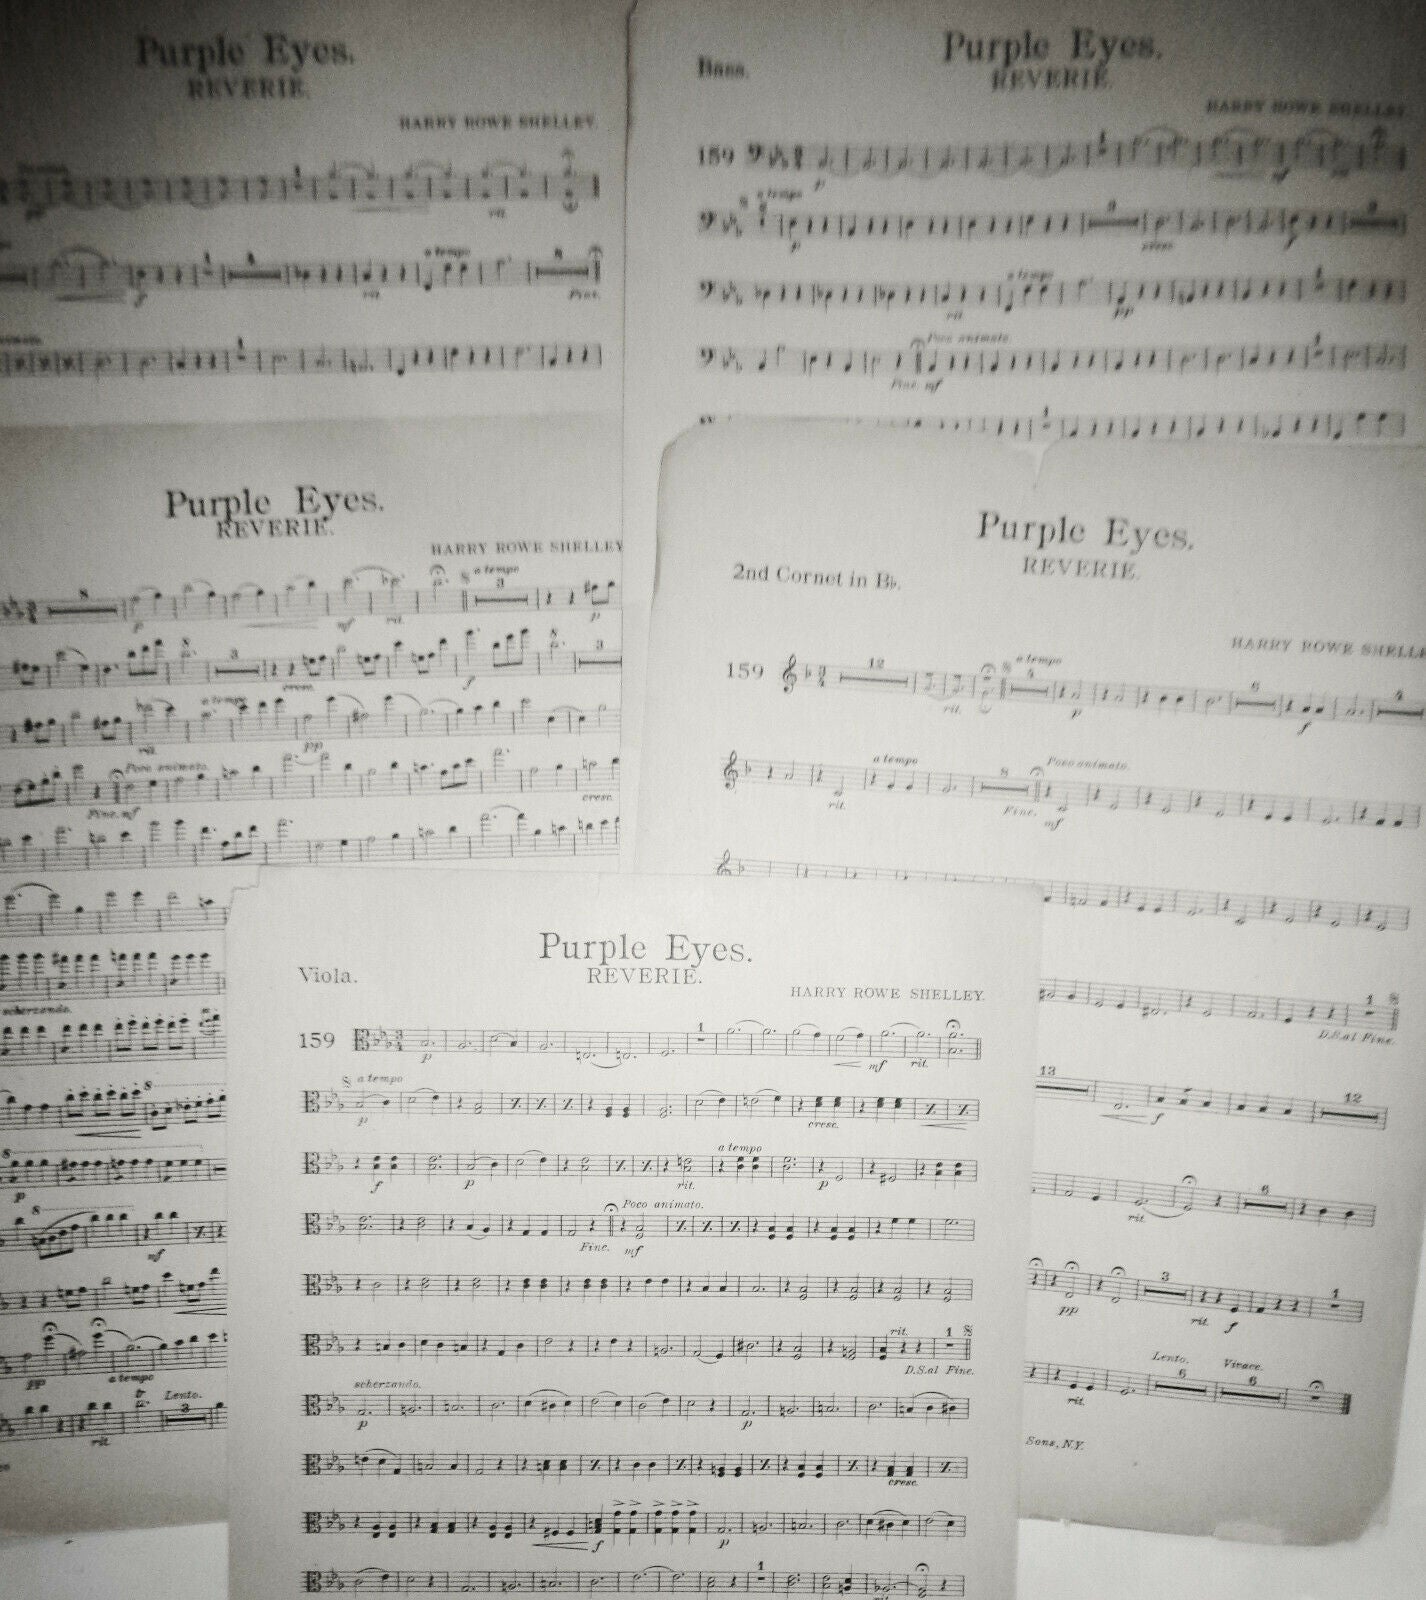 Purple Eyes.
REVERIE.
HARRY ROWE SHELLEY.
rit.
a tempo
rit.
Fine.
Bass.
Purple Eyes.
REVERIE.
HARRY ROWE SHELLEY
159
p
mf
a tempo
p
cresc.
a tempo
rit.
pp
Poco animato
Fine. mf
Purple Eyes.
REVERIE.
HARRY ROWE SHELLEY
8
a tempo
3
p
mf
rit.
p
3
3
cresc.
f
a tempo
rit.
pp
Poco animato.
Fine. mf
cresc.
scherzando.
8
8
p
8
mf
pp
a tempo
tr
Lento.
3
rit
Purple Eyes.
REVERIE.
2nd Cornet in B♭.
HARRY ROWE SHELLE
159
12
a tempo
4
6
4
rit.
p
f
a tempo
8
Poco animato.
rit.
Fine.
mf
1
D.S.al Fine.
13
12
f
6
rit.
3
1
pp
rit.
f
Lento.
Vivace.
6
6
rit.
Sons, N.Y.
Purple Eyes.
Viola.
REVERIE.
HARRY ROWE SHELLEY.
159
1
p
mf
rit.
a tempo
p
cresc.
a tempo
f
p
rit.
p
Poco animato.
Fine.
mf
rit.
1
D.S.al Fine.
scherzando.
p
p
cresc.
f
p
1
rit.